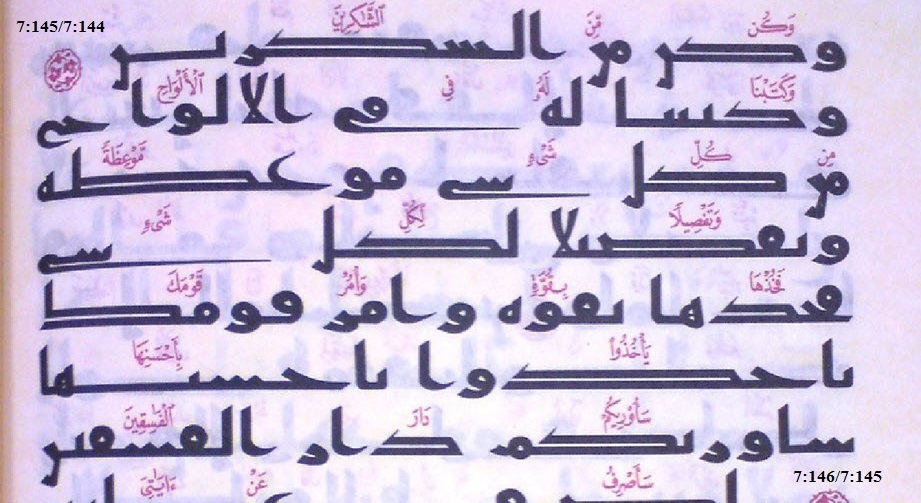 7:145/7:144
وَكُن مِّنَ الشَّٰكِرِينَ
وكن من الشكرين
وَكَتَبْنَا لَهُۥ فِى الْأَلْوَاحِ
وكتبنا له في الالواح
مِن كُلِّ شَىْءٍ مَّوْعِظَةً
من كل شي موعظه
وَتَفْصِيلًا لِّكُلِّ شَىْءٍ
وتفصيلا لكل شي
فَخُذْهَا بِقُوَّةٍ وَأْمُرْ قَوْمَكَ
فخذها بقوه وامر قومك
يَأْخُذُوا۟ بِأَحْسَنِهَا
ياخذوا باحسنها
سَأُو۟رِيكُمْ دَارَ الْفَٰسِقِينَ
ساوريكم دار الفسقين
7:146/7:145
سَأَصْرِفُ عَنْ ءَايَٰتِىَ